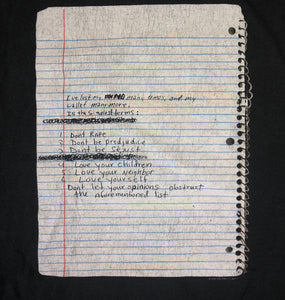 I've listed many times, and my
bullet many more.
In the simplest terms:
1. Dont Rape
2 Dont be predjudice
3. Dont be sexist
4. Love your children
5. Love your neighbor
6. Love yourself
Dont let your opinions obstruct
the aforementioned list